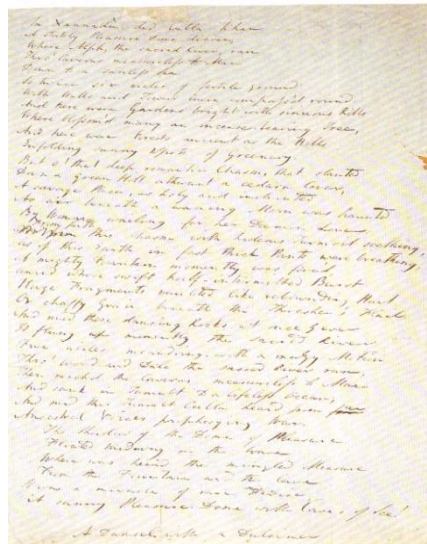 In Xannadù did Cubla Khan
A stately Pleasure-Dome decree;
Where Alph, the sacred River, ran
Thro' Caverns measureless to Man
Down to a sunless Sea.
So twice six miles of fertile ground
With Walls and Towers were compass'd round:
And here were Gardens bright with sinuous Rills
Where blossom'd many an incense-bearing Tree,
And here were Forests ancient as the Hills
Enfolding sunny Spots of Greenery.
But o! that deep romantic Chasm, that slanted
Down a green Hill athwart a cedarn Cover,
A savage Place, as holy and inchanted
As e'er beneath a waning Moon was haunted
By Woman wailing for her Daemon Lover:
From forth this Chasm with hideous Turmoil seething,
As if this Earth in fast thick Pants were breathing,
A mighty Fountain momently was forc'd,
Amid whose swift half-intermitted Burst
Huge Fragments vaulted like rebounding Hail,
Or chaffy Grain beneath the Thresher's Flail:
And mid these dancing Rocks at once & ever
It flung up momently the sacred River.
Five miles meandring with a mazy Motion
Thro' Wood and Dale the sacred River ran,
Then reach'd the Caverns measureless to Man
And sank in Tumult to a lifeless Ocean;
And mid this Tumult Cubla heard from
Ancestral Voices prophesying War.
The Shadow of the Dome of Pleasure
Floated midway on the Wave
Where was heard the mingled Measure
From the Fountain and the Cave.
It was a miracle of rare Device,
A sunny Pleasure-Dome with Caves of Ice!
A Damsel with a Dulcimer